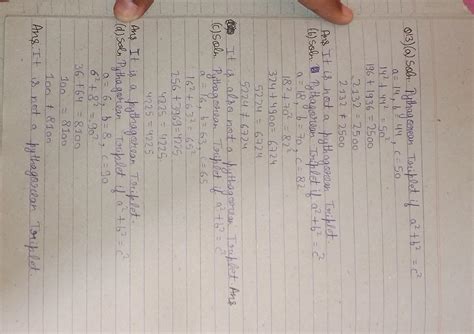 Q13) (a) Soln Pythagorean Triplet if a² + b² = c²
a = 14, b = 44, c = 50
14² + 44² = 50²
196 + 1936 = 2500
2132 = 2500
2132 ≠ 2500
Ans It is not a pythagorean Triplet
(b) Soln Pythagorean Triplet if a² + b² = c²
a = 18, b = 70, c = 82
18² + 70² = 82²
324 + 4900 = 6724
5224 = 6724
5224 ≠ 6724
It is also not a pythagorean Triplet Ans
(c) Soln Pythagorean Triplet if a² + b² = c²
a = 16, b = 63, c = 65
16² + 63² = 65²
256 + 3969 = 4225
4225 = 4225
4225 = 4225
Ans It is a pythagorean Triplet.
(d) Soln Pythagorean Triplet if a² + b² = c²
a = 6, b = 8, c = 90
6² + 8² = 90²
36 + 64 = 8100
100 = 8100
100 ≠ 8100
Ans It is not a pythagorean Triplet.